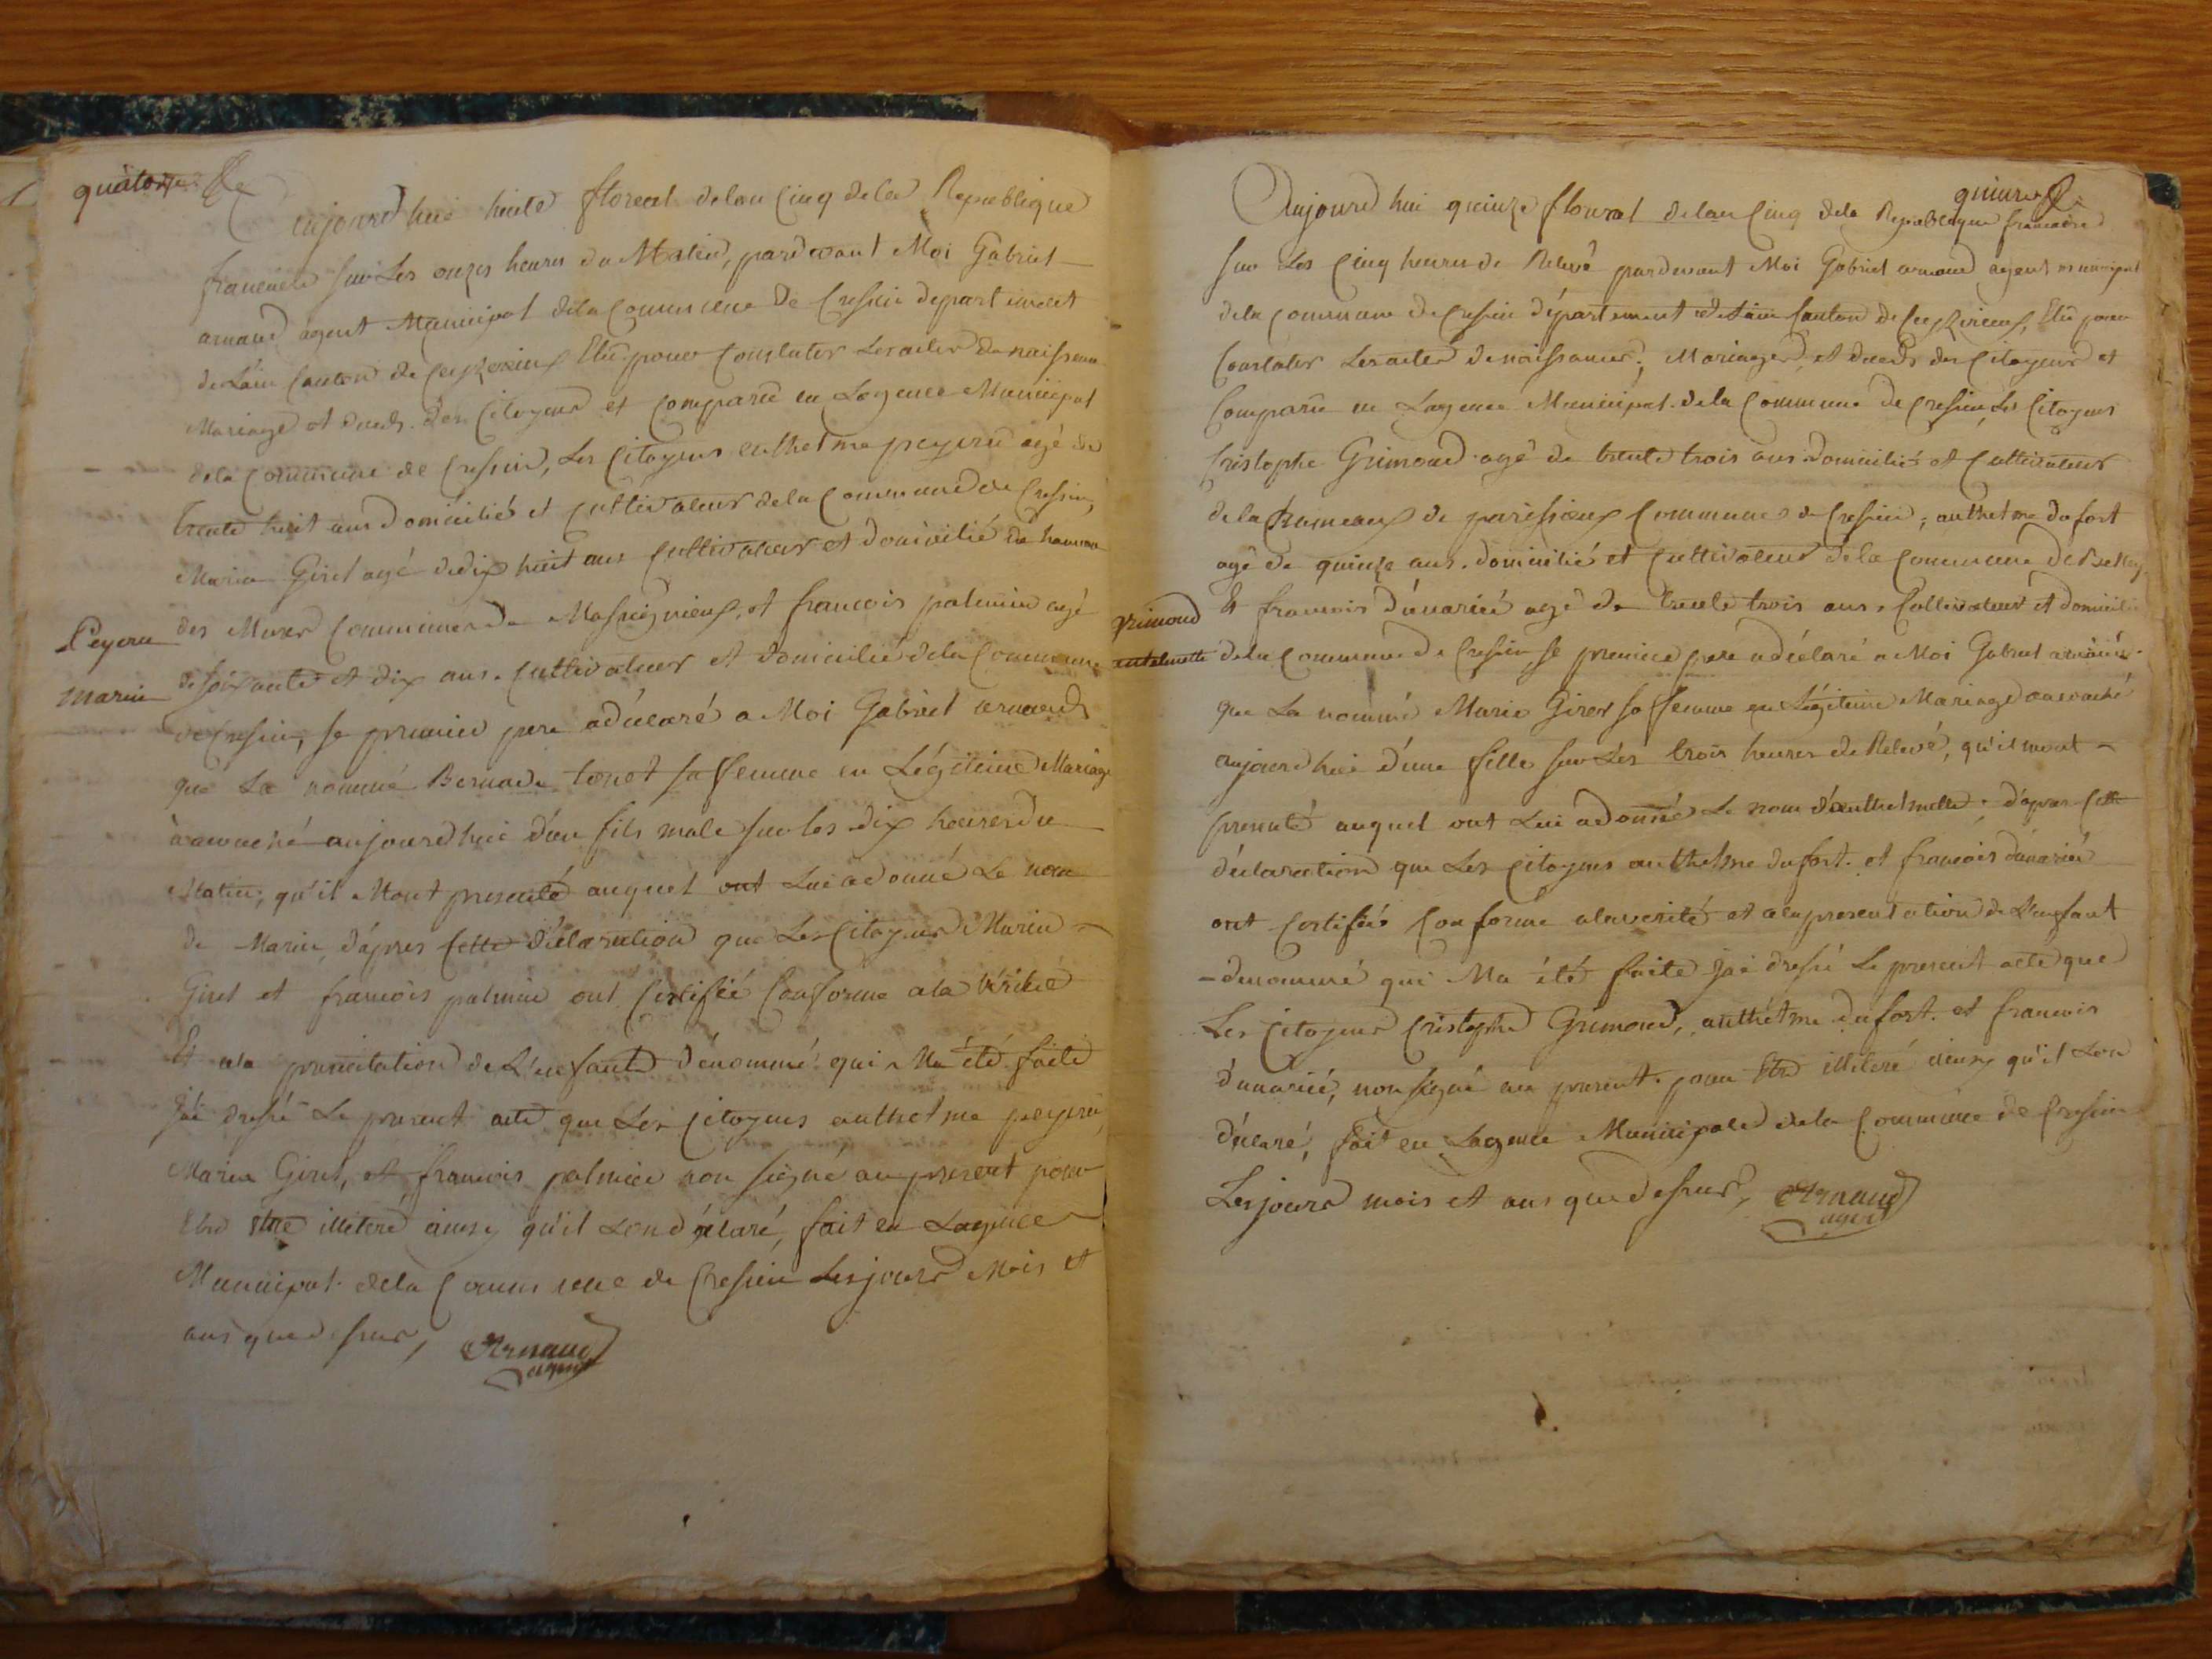 quatorze
aujourd huit huite floreal delan Cinq dela Republique
francaise sur Les onzes heures du Matin, pardevant Moi Gabriel
arnaud agent Municipal dela Commune de Cressin departement
de Lain Canton de Ceyzerieux Elu pour Constater Les actes de naissance
Mariage et deceds des Citoyens et Comparu en Lagence Municipal
dela Commune de Cressin, Les Citoyens anthelme peysru agé de
trente huit ans domicilié et Cultivateur dela Commune de Cressin,
Marin Giret agé de dix huit ans Cultivateur et domicilié de hameau
des Mures Commune de Massignieux, et francois palmier agé
Peyeru
de soixante et dix ans. Cultivateur et domicilié dela Commune
Marin
de Cressin, se premier pere adéclaré a Moi Gabriel arnaud
que La nommé Bernade tenet sa femme en Légitime Mariage
a accouché aujourdhuit d'un fils male sur les dix heures du
Matin, qu'il Mont presenté auquel ont Lui adonné Le nom
de Marin, d'apres Cette déclaration que Les Citoyens Marin
Giret et francois palmier ont Certifié Conforme ala vérité
Et ala presentation de L'enfant dénommé qui Ma été faite
Jai dressé Le present acte que Les Citoyens anthelme peysru,
Marin Giret, et francois palmier non signé au present pour
Etre illiteré ainsy qu'il Lon déclaré, fait en Lagence
Municipal dela Commune de Cressin Les jours Mois et
ans que dessus, Arnaud
agent
quinze
Aujourd hui quinze floural delan Cinq dela Republique francaise
sur Les Cinq heures de Relevé pardevant Moi Gabriel arnaud agent municipal
dela Commune de Cressin département de Lain Canton de Ceyzerieux, Elu pour
Constater Les actes de naissances, Mariages, et deceds des Citoyens et
Comparu en Lagence Municipal dela Commune de Cressin, Les Citoyens
Cristophe Grimoud agé de trente trois ans domicilié et Cultivateur
de la hameaux de parissieux Commune de Cressin, anthelme dufort
agé de quinze ans. domicilié et Cultivateur dela Commune de Belley
Et francois d'unarieé agé de trente trois ans, Cultivateur et domicilié
grimoud
antelmette
dela Commune de Cressin, se premier pere adéclaré a Moi Gabriel arnaud
que La nommé Marie Girer sa femme en Légitime Mariage a accouché
aujourdhui d'une fille sur Les trois heures de Relevé, qu'il mont
presenté auquel ont Lui adonné Le nom d'anthelmette. d'apres Cette
déclaration que Les Citoyens anthelme dufort et francois dunarieé
ont Certifié Conforme ala verité et ala presentation de L'enfant
denommé qui Ma été faite Jai dressé Le present acte que
Les Citoyens Cristophe Grimoud, anthelme dufort. et francois
dunarieé, non signé au present. pour Etre illiteré ainsy qu'il Lon
déclaré, fait en Lagence Municipale dela Commune de Cressin
Les jours mois et ans que dessus, Arnaud
agent